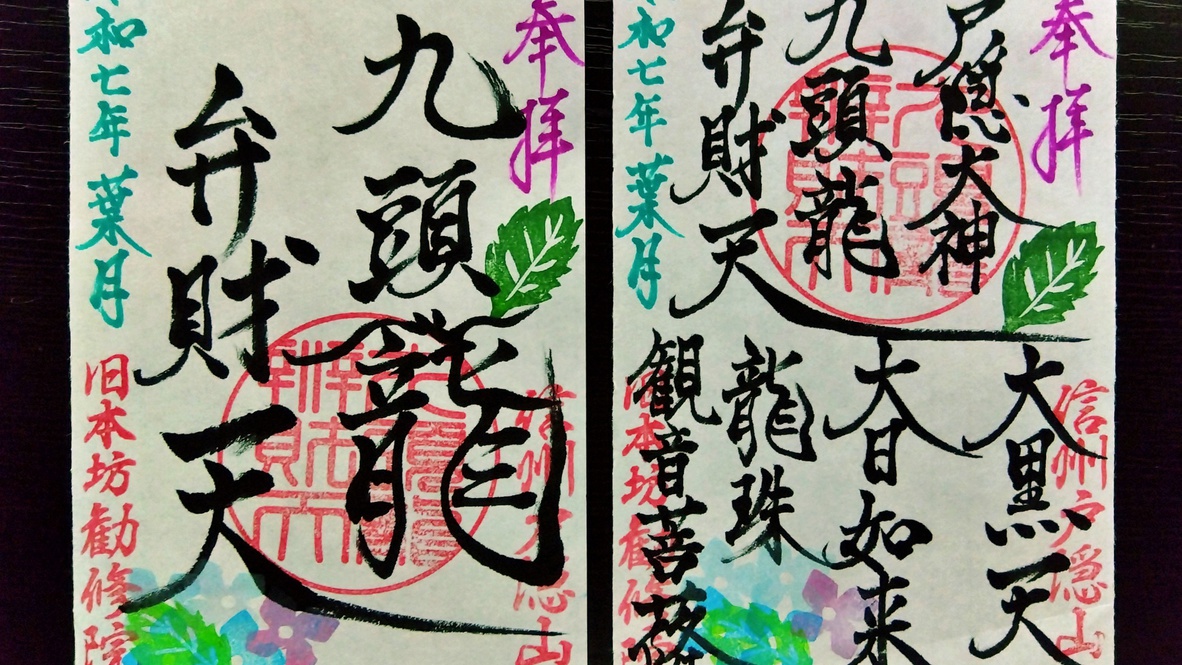 奉拝
九頭龍
弁財天
令和七年葉月
信州戸隠山
旧本坊勧修院
奉拝
戸隠大神
九頭龍
弁財天
令和七年葉月
大黒天
大日如来
龍珠
観音菩薩
信州戸隠山
旧本坊勧修院